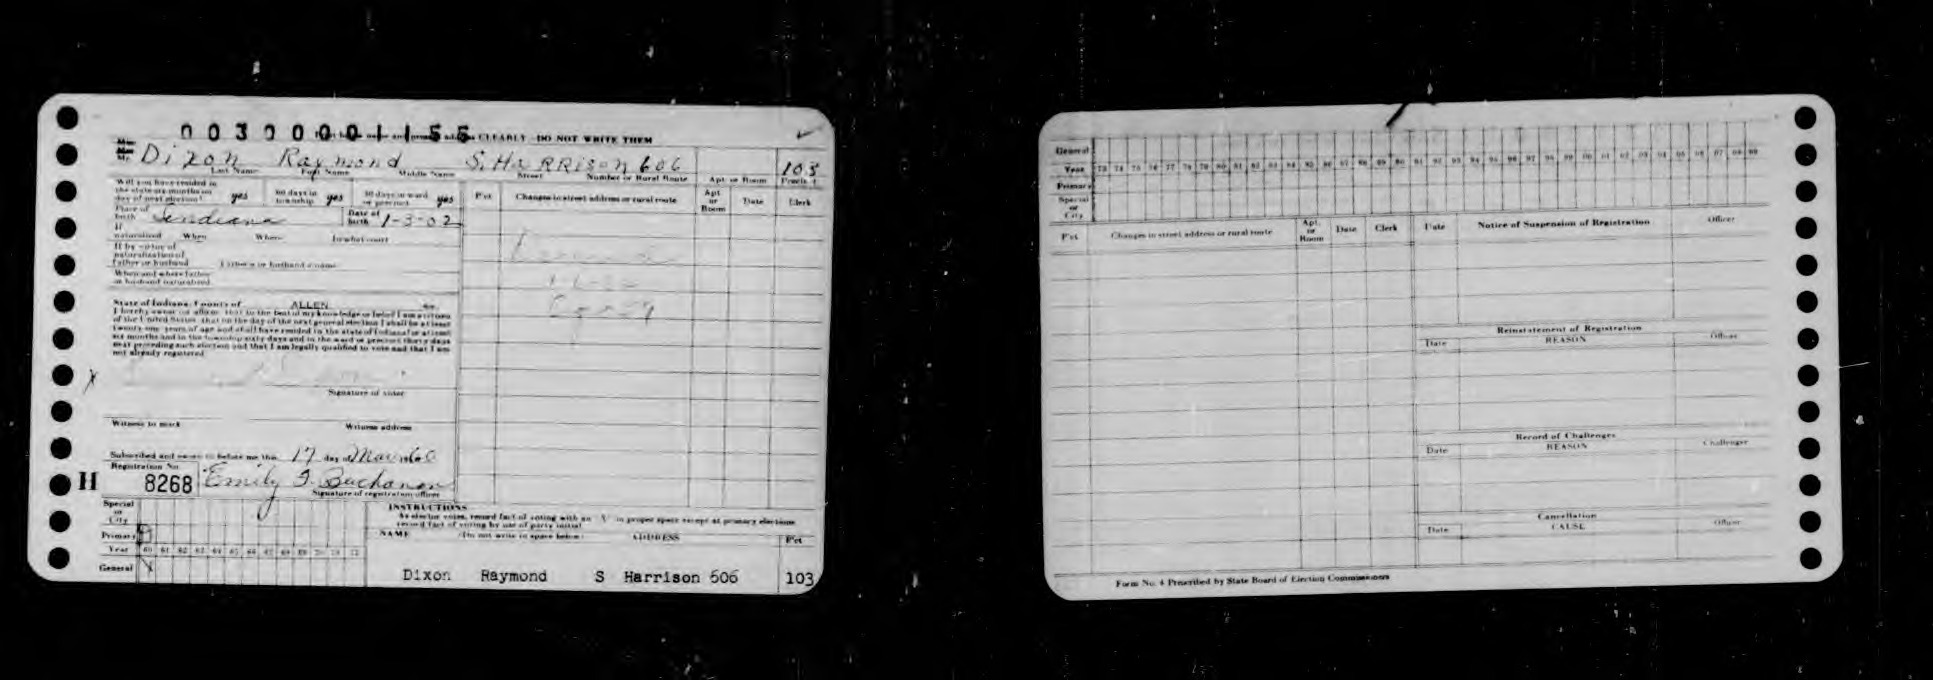 00300001155 CLEARLY DO NOT WRITE THEM
Mr. Dixon Raymond S. Harrison 606 103
Last Name First Name Middle Name Street Number or Rural Route Apt. or Room Precinct
Will you have resided in the state six months on day of next election? yes 60 days in township yes 30 days in ward or precinct yes
P'ct Changes in street address or rural route Apt. or Room Date Clerk
Place of birth Indiana Date of birth 1-3-02
If naturalized When Where In what court
If by virtue of naturalization of father or husband Father's or husband's name
When and where father or husband naturalized
State of Indiana, County of ALLEN ss:
I hereby swear or affirm that to the best of my knowledge or belief I am a citizen
of the United States, that on the day of the next general election I shall be at least
twenty-one years of age and shall have resided in the state of Indiana for at least
six months and in the township sixty days and in the ward or precinct thirty days
next preceding such election and that I am legally qualified to vote and that I am
not already registered
X
Signature of voter
Witness to mark Witness address
Subscribed and sworn to before me this 17 day of Mar 1960
Registration No.
H 8268 Emily F. Buchanan
Signature of registration officer
Special or City
Primary
Year 60 61 62 63 64 65 66 67 68 69 70 71 72
General X
INSTRUCTIONS
As elector votes, record fact of voting with an "X" in proper space except at primary elections
record fact of voting by use of party initial
NAME (Do not write in space below) ADDRESS P'ct
Dixon Raymond S Harrison 606 103
General
Year 73 74 75 76 77 78 79 80 81 82 83 84 85 86 87 88 89 90 91 92 93
Primary
Special or City
P'ct Changes in street address or rural route Apt. or Room Date Clerk Date Notice of Suspension of Registration Officer
Reinstatement of Registration
Date REASON Officer
Record of Challenges
Date REASON Challenger
Cancellation
Date CAUSE Officer
Form No. 4 Prescribed by State Board of Election Commissioners